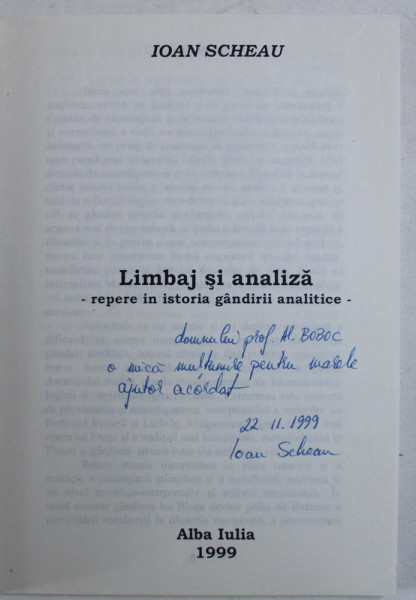 IOAN SCHEAU
Limbaj şi analiză
- repere in istoria gândirii analitice -
domnului prof. Al. BOBOC
o mică mulţumire pentru marele
ajutor acordat
22.11.1999
Ioan Scheau
Alba Iulia
1999